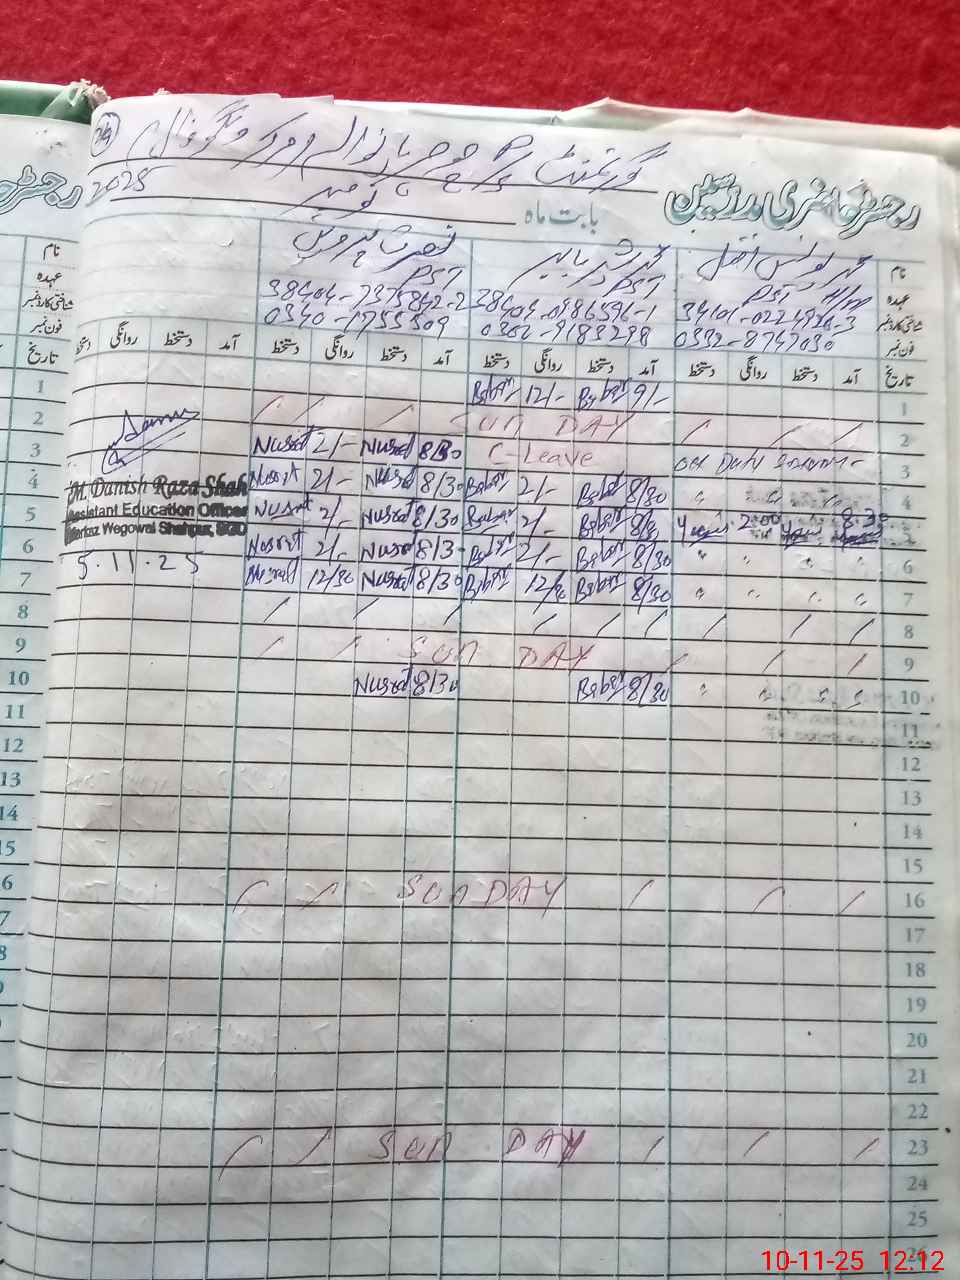 رجسٹر حاضری مدرسین
گورنمنٹ
بابت ماہ نومبر 2025
نام
عہدہ PST PST PST H/M
شناختی کارڈ نمبر 34101-0224928-3 38404-0986596-1 38404-7375842-2
فون نمبر 0332-8747030 0302-9183298 0340-1755309
تاریخ آمد دستخط روانگی دستخط آمد دستخط روانگی دستخط آمد دستخط روانگی دستخط آمد دستخط روانگی
1 Babar 12/- Babar 9/-
2 SUN DAY
3 Nusrat 2/- Nusrat 8/30 C-Leave
4 Nusrat 2/- Nusrat 8/30 Babar 2/- Babar 8/30
5 Nusrat 2/- Nusrat 8/30 Babar 2/- Babar 8/30 2:00 8:30
6 Nusrat 2/- Nusrat 8/30 Babar 2/- Babar 8/30
7 Nusrat 12/30 Nusrat 8/30 Babar 12/30 Babar 8/30
8
9 SUN DAY
10 Nusrat 8/30 Babar 8/30
11
12
13
14
15
16 SUN DAY
17
18
19
20
21
22
23 SUN DAY
24
25
26
M. Danish Raza Shah
Assistant Education Officer
Markaz Wegowal Shahpur, SGD
5.11.25
10-11-25 12:12